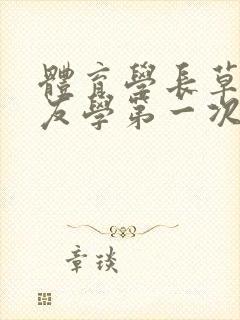 體育學長草
友學第一次
章琰